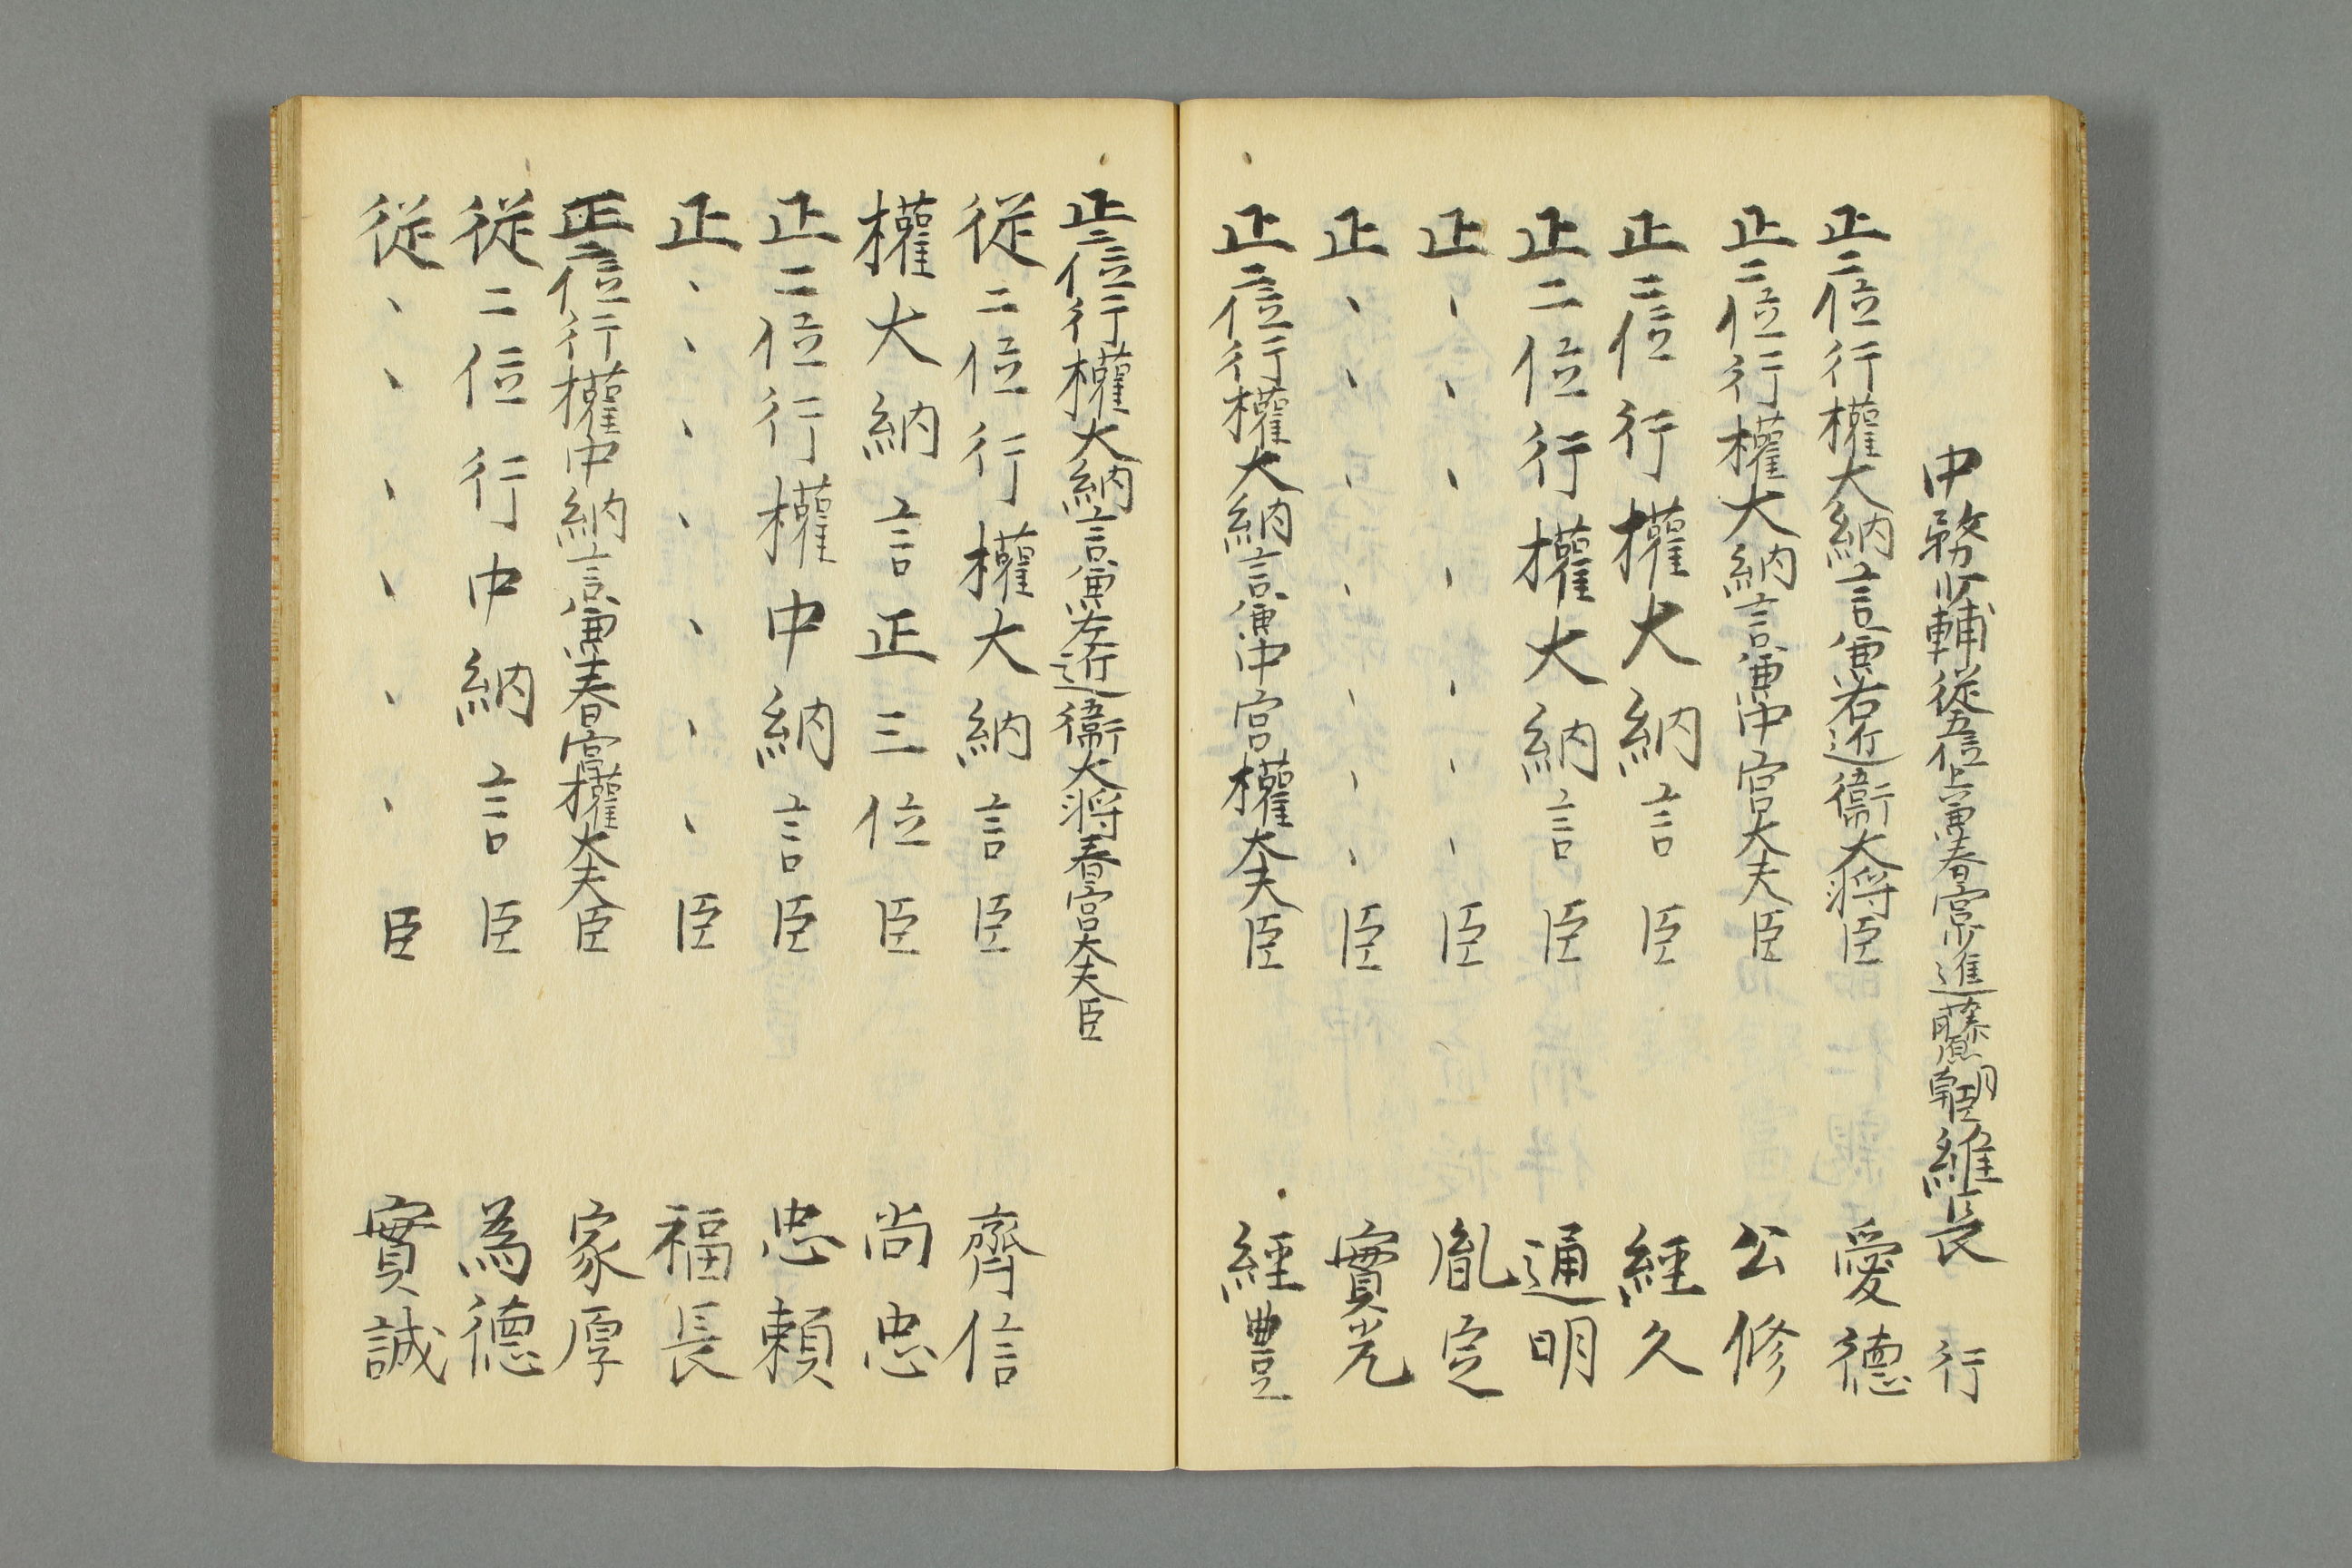 中務少輔從五位上兼春宮少進藤原朝臣維長 行
正二位行權大納言兼右近衞大将臣 愛德
正二位行權大納言兼中宮大夫臣 公修
正二位行權大納言臣 經久
正二位行權大納言臣 通明
正、、、、、、、臣 胤定
正、、、、、、、臣 實光
正二位行權大納言兼中宮權大夫臣 經豊
正二位行權大納言兼左近衞大将春宮大夫臣
從二位行權大納言臣 齊信
權大納言正三位臣 尚忠
正二位行權中納言臣 忠頼
正、、、、、、、臣 福長
正二位行權中納言兼春宮權大夫臣 家厚
從二位行中納言臣 為德
從、、、、、、臣 實誠